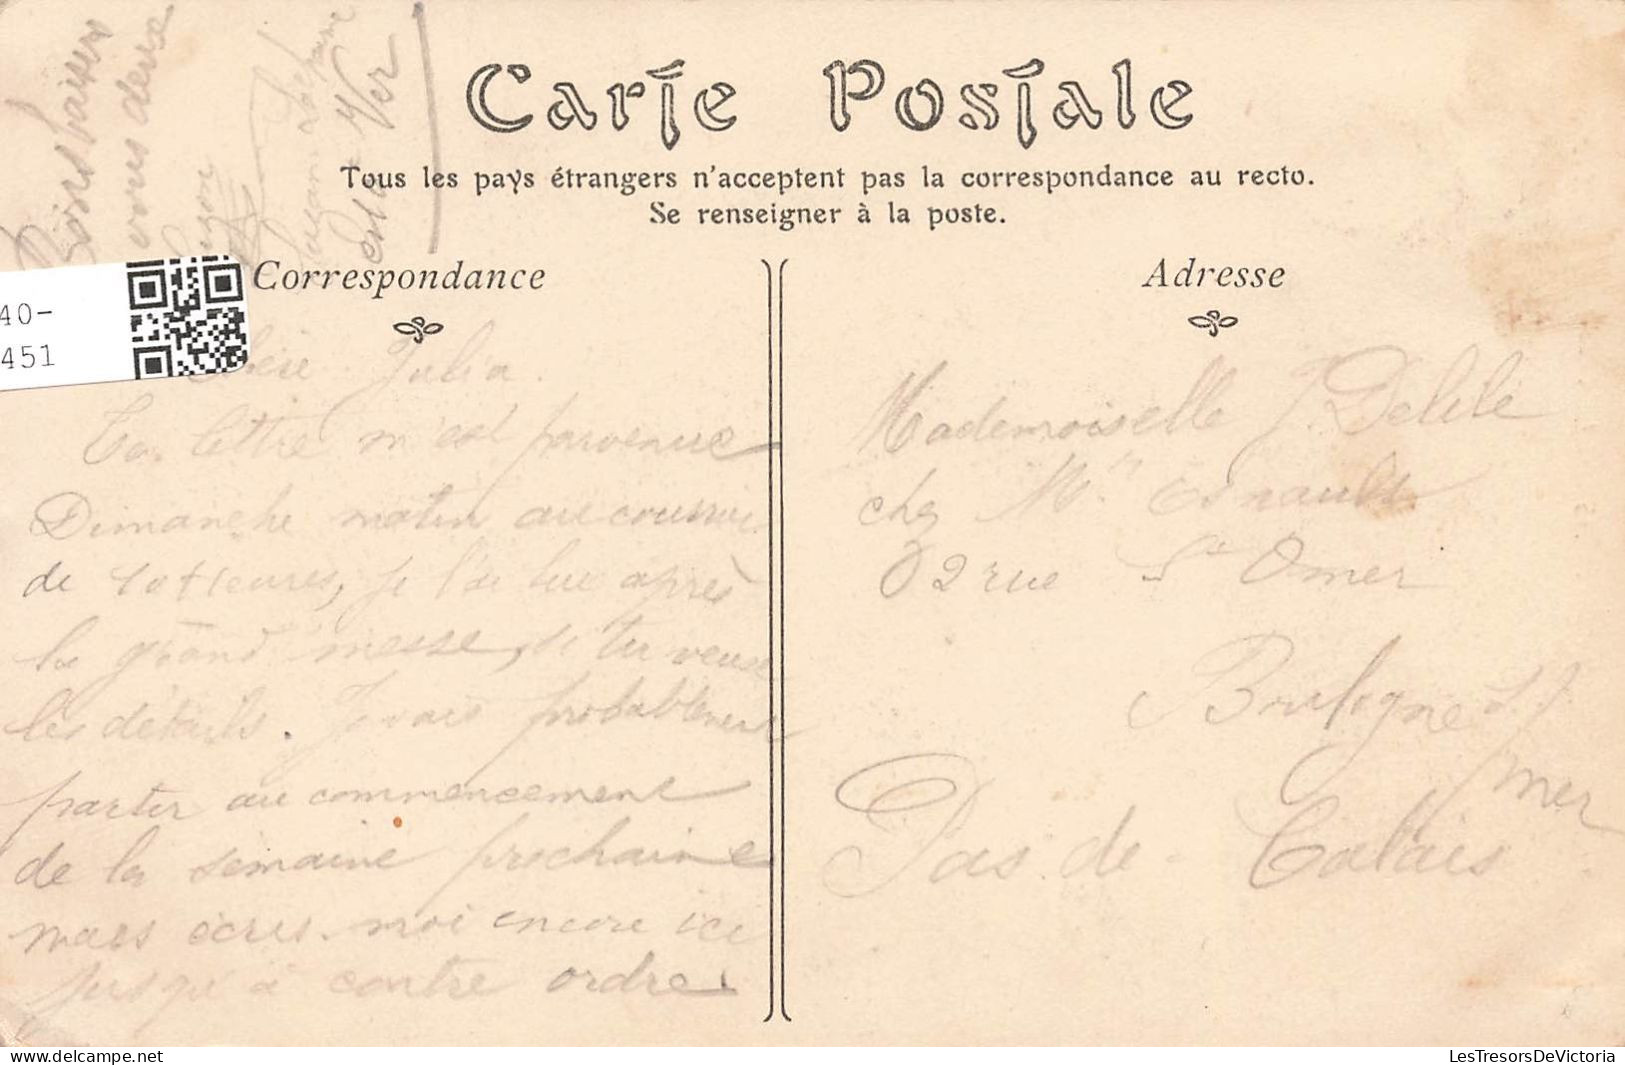 Carte Postale
Tous les pays étrangers n'acceptent pas la correspondance au recto.
Se renseigner à la poste.
Correspondance
Adresse
40-
451
Bons baisers
vous deux
Ver
Chère Julia.
Ta lettre m'est parvenue
Dimanche matin au courrier
de 10 heures, je l'ai lue après
la grand messe, si tu veux
les détails. Je vais probablement
partir au commencement
de la semaine prochaine
mais écris-moi encore ici
jusqu'à contre ordre
Mademoiselle J. Delile
chez Mr
82 rue St Omer
Boulogne s/
mer
Pas-de-Calais
LesTresorsDeVictoria